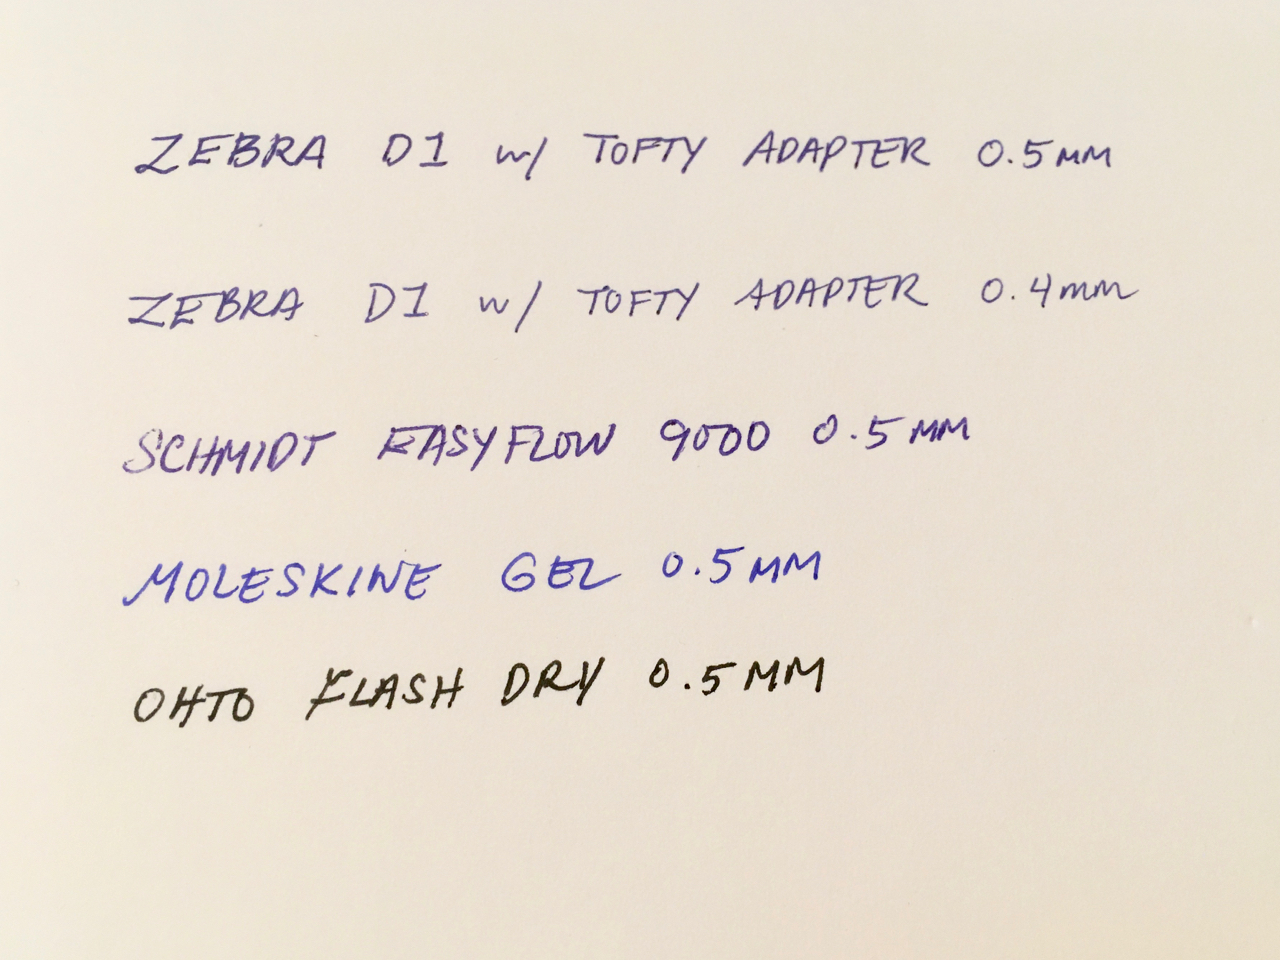 ZEBRA D1 w/ TOFTY ADAPTER 0.5MM
ZEBRA D1 w/ TOFTY ADAPTER 0.4mm
SCHMIDT EASYFLOW 9000 0.5MM
MOLESKINE GEL 0.5MM
OHTO FLASH DRY 0.5MM